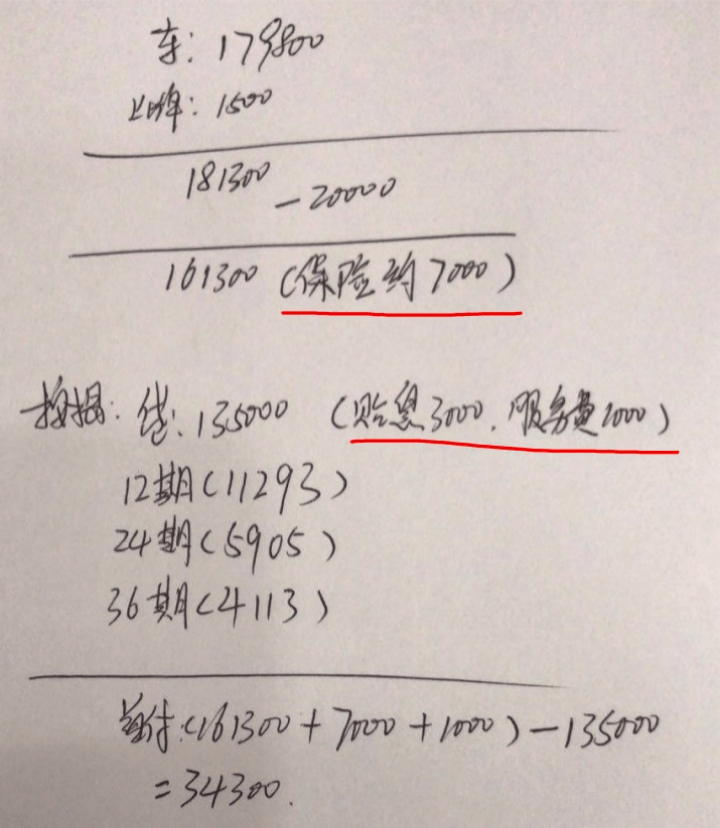 车: 179800
上牌: 1500
181300 -20000
161300 (保险约7000)
按揭: 贷: 135000 (贴息3000. 服务费1000)
12期(11293)
24期(5905)
36期(4113)
首付:(161300+7000+1000)-135000
=34300.